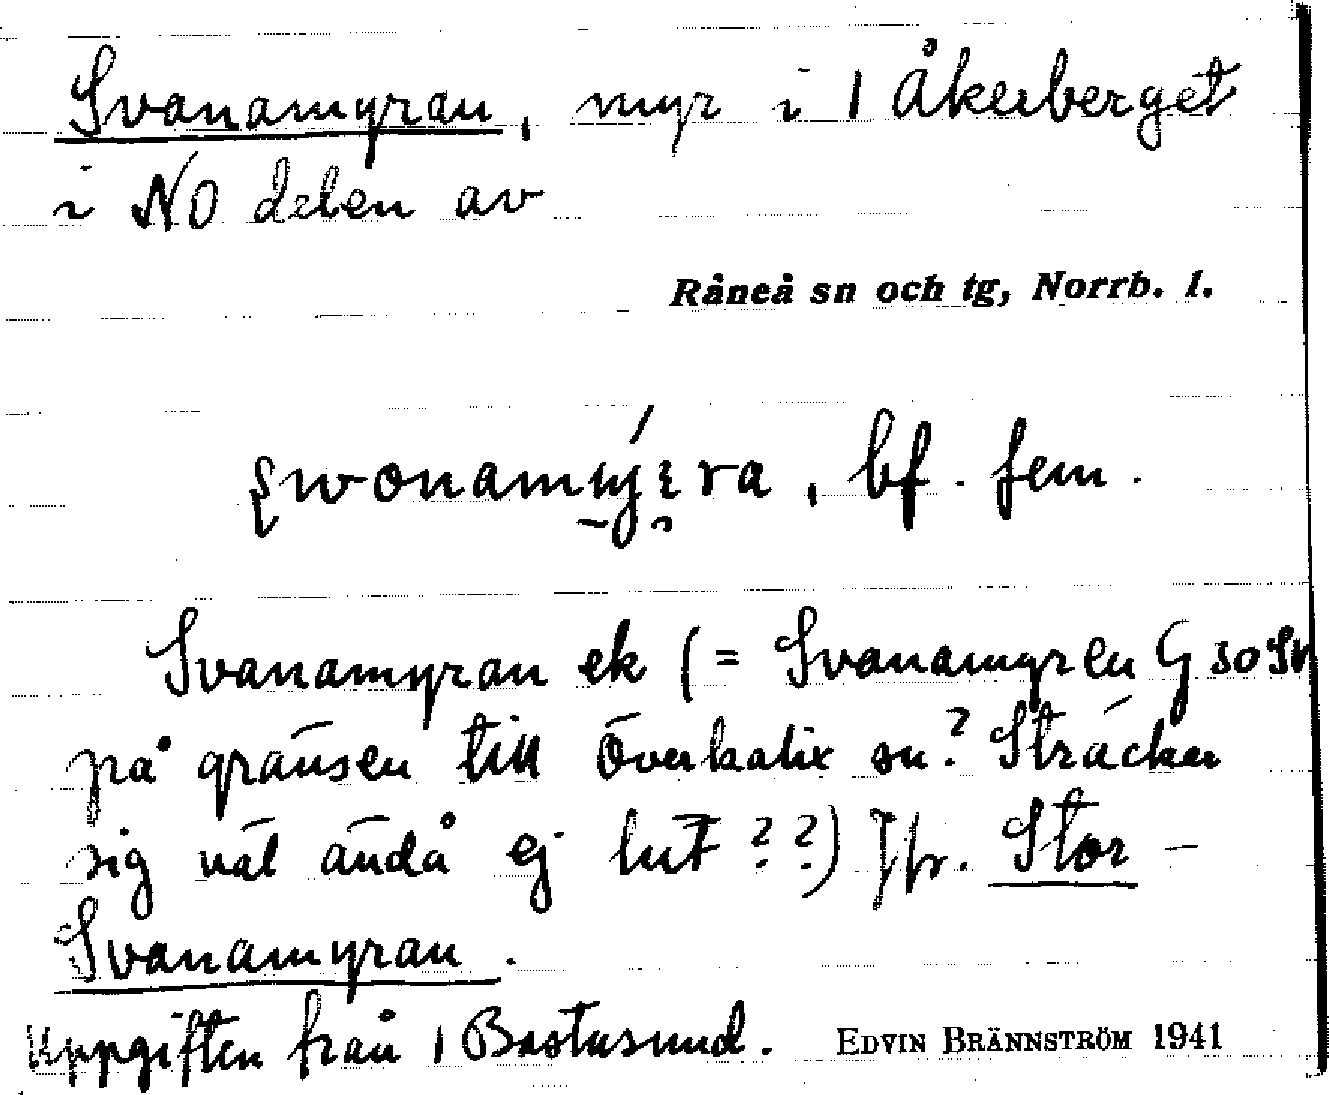 Svanamyran, myr i 1 Åkerberget
i NO delen av
Råneå sn och tg, Norrb. l.
bf. fem.
Svanamyran ek (= Svanamyren G SO
på gränsen till Överkalix sn? Sträcker
sig väl ändå ej hit ??) Jfr. Stor-
Svanamyran.
Uppgiften från 1 Bastusund. EDVIN BRÄNNSTRÖM 1941